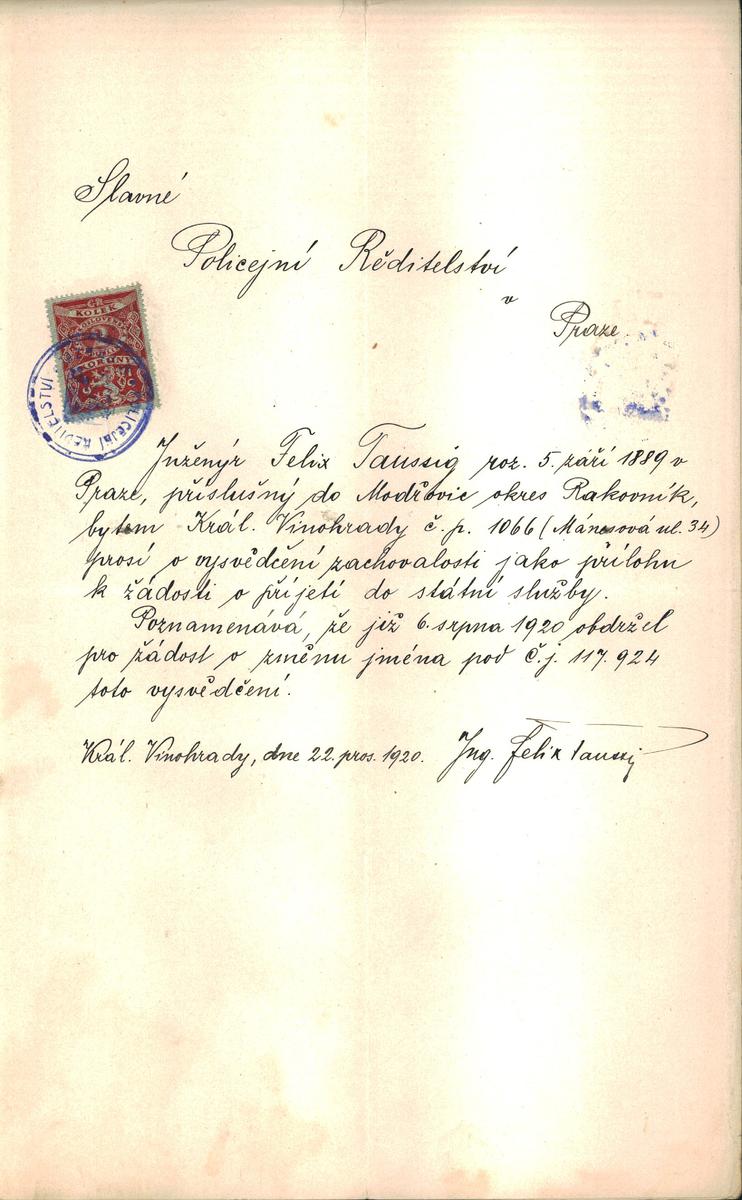 Slavné
Policejní Řěditelství
v
Praze
KOLEK
KORUNY
POLICEJNÍ ŘEDITELSTVÍ
Inženýr Felix Taussig roz. 5. září 1889 v
Praze, příslušný do Modřovic okres Rakovník,
bytem Král. Vinohrady č. p. 1066 (Mánesová ul. 34)
prosí o vysvědčení zachovalosti jako přílohu
k žádosti o příjetí do státní služby.
Poznamenává, že již 6. srpna 1920 obdržel
pro žádost o změnu jména pod č.j. 117.924
toto vysvědčení.
Král. Vinohrady, dne 22. pros. 1920. Ing. Felix Taussig